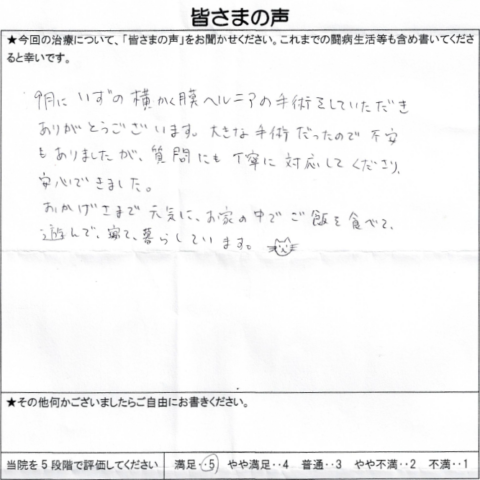 皆さまの声
★今回の治療について、「皆さまの声」をお聞かせください。これまでの闘病生活等も含め書いてくださ
ると幸いです。
9月に いずの 横かく膜ヘルニアの手術をしていただき
ありがとうございます。大きな手術だったので 不安
もありましたが、質問にも 丁寧に対応してくださり、
安心できました。
おかげさまで 元気に、お家の中で ご飯を食べて、
遊んで、寝て、暮らしています。
★その他何かございましたらご自由にお書きください。
当院を5段階で評価してください 満足‥5 やや満足‥4 普通‥3 やや不満‥2 不満‥1